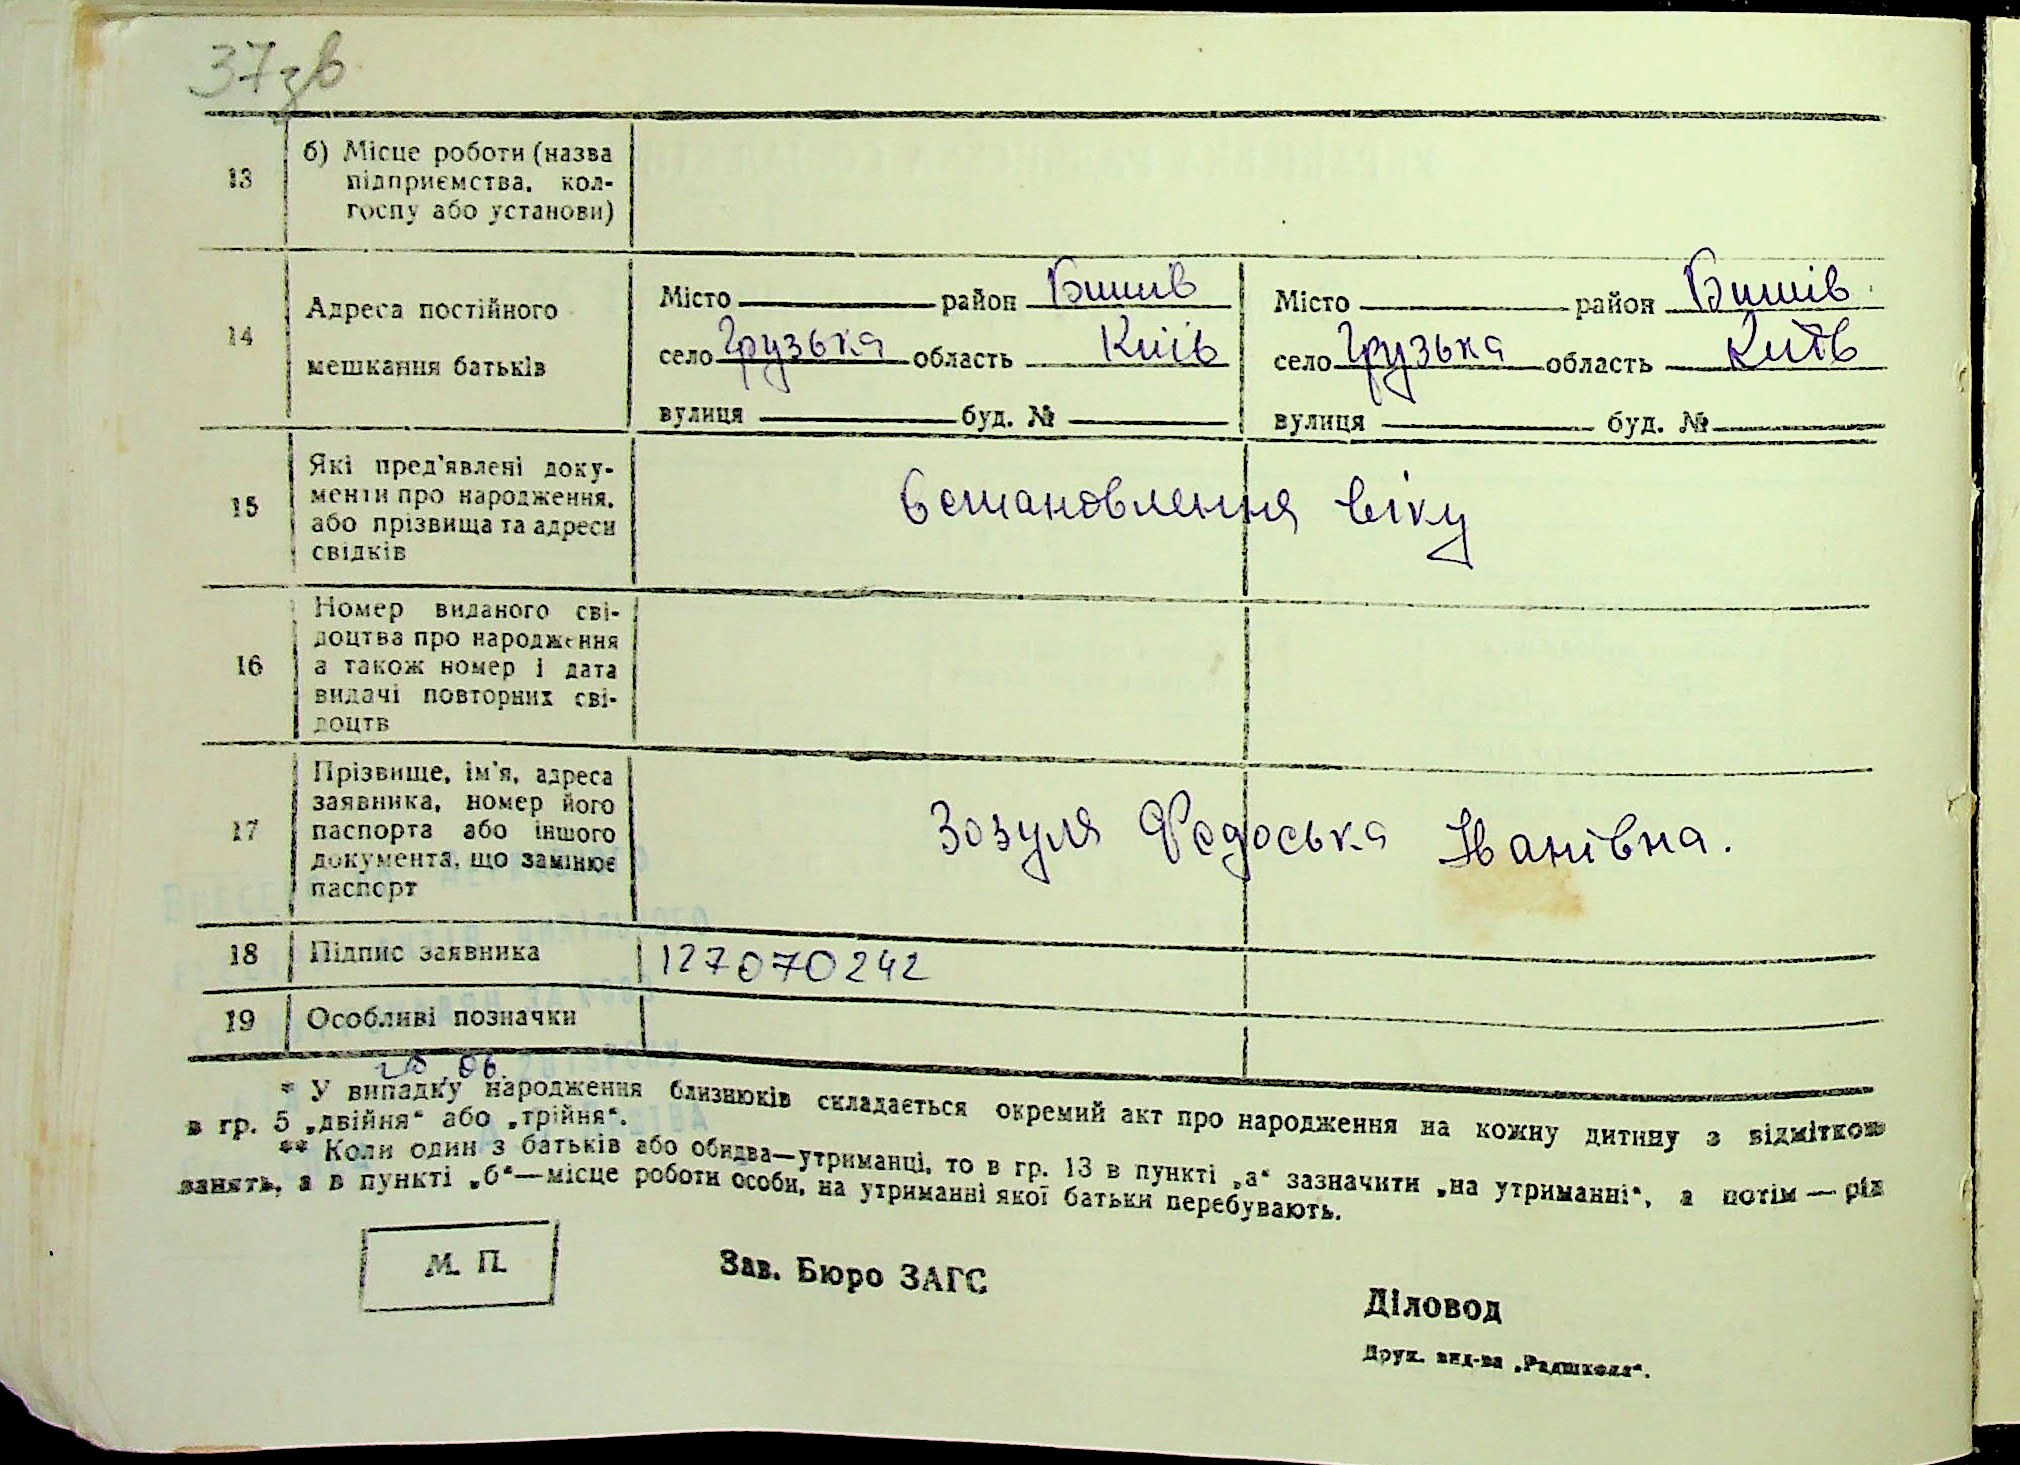 37зв
13
б) Місце роботи (назва
підприємства, кол-
госпу або установи)
14
Адреса постійного
мешкання батьків
Місто район Бишів
село Грузька область Київ
вулиця буд. №
Місто район Бишів
село Грузька область Київ
вулиця буд. №
15
Які пред'явлені доку-
менти про народження,
або прізвища та адреси
свідків
Встановлення віку
16
Номер виданого сві-
доцтва про народження
а також номер і дата
видачі повторних сві-
доцтв
17
Прізвище, ім'я, адреса
заявника, номер його
паспорта або іншого
документа, що замінює
паспорт
Зозуля Федоська Іванівна.
18
Підпис заявника
127070242
19
Особливі позначки
* У випадку народження близнюків складається окремий акт про народження на кожну дитину з відміткою
в гр. 5 „двійня“ або „трійня“.
** Коли один з батьків або обидва—утриманці, то в гр. 13 в пункті „а“ зазначити „на утриманні“, а потім — рід
занять, а в пункті „б“—місце роботи особи, на утриманні якої батьки перебувають.
М. П.
Зав. Бюро ЗАГС
Діловод
Друк. вид-ва „Радшкола“.